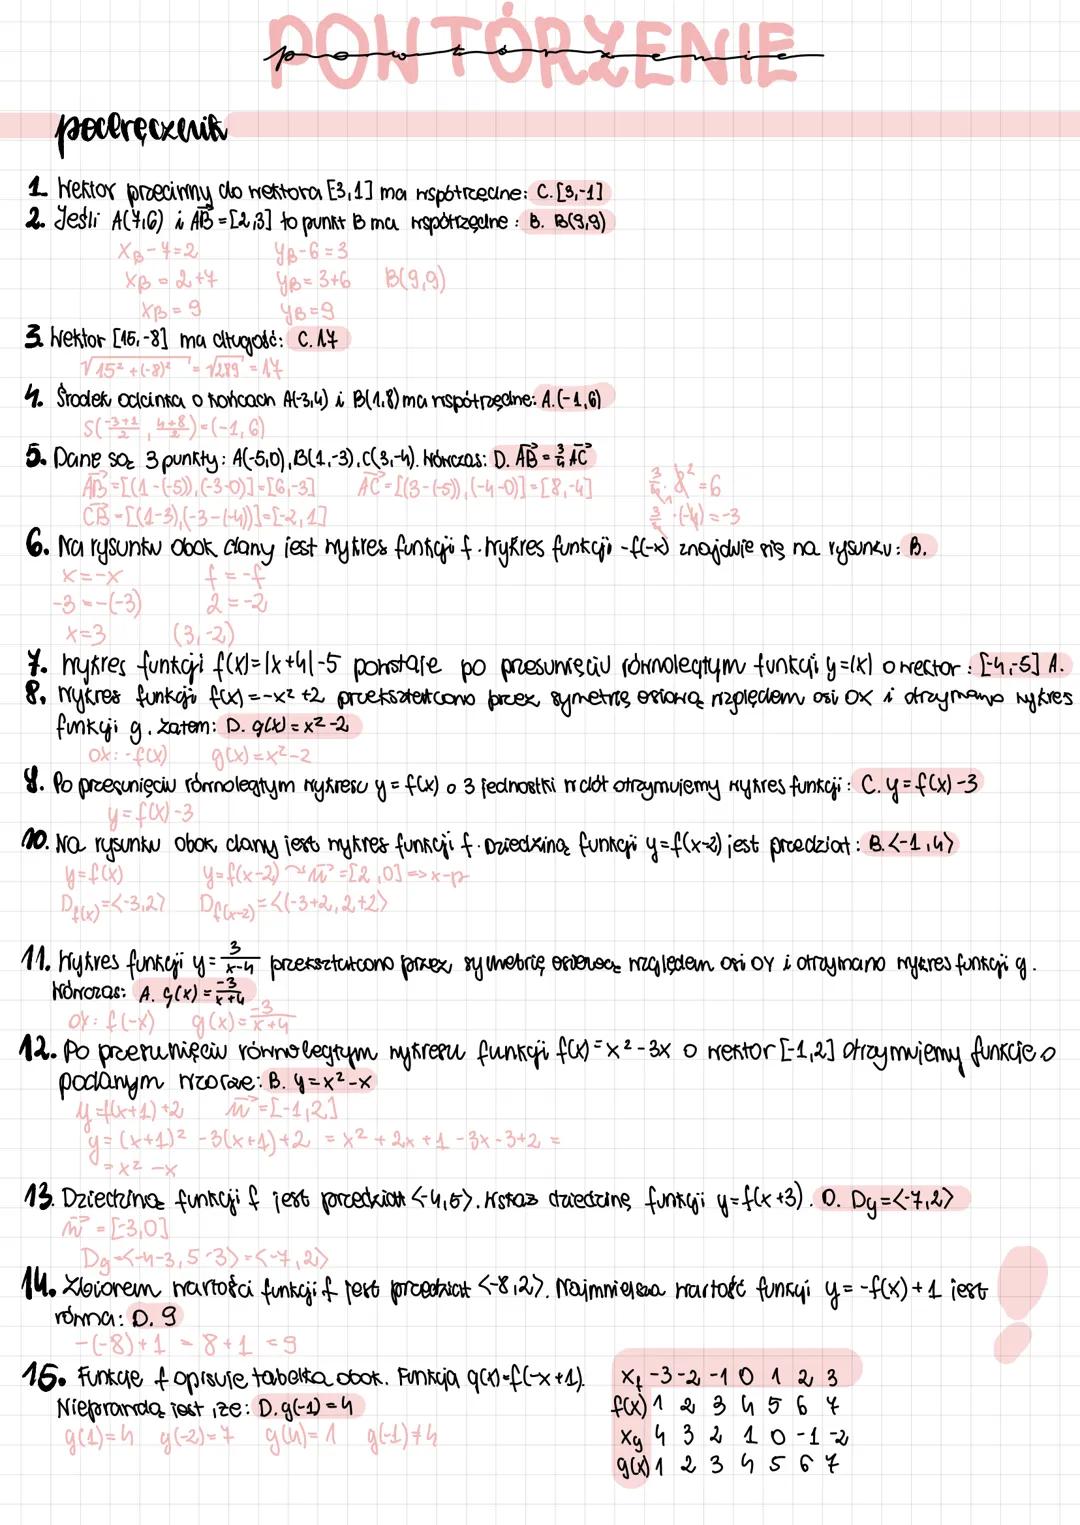 POWTÓRZENIE
powtórzenie
podręcznik
1. Wektor przeciwny do wektora [3,1] ma współrzędne: C. [3,-1]
2. Jeśli A(7,6) i AB = [2,3] to punkt B ma współrzędne: B. B(9,9)
x_B - 7 = 2 y_B - 6 = 3
x_B = 2 + 7 y_B = 3 + 6 B(9,9)
x_B = 9 y_B = 9
3. Wektor [15,-8] ma długość: C. 17
√15² + (-8)² = √289 = 17
4. Środek odcinka o końcach A(-3,4) i B(1,8) ma współrzędne: A. (-1,6)
S((-3+1)/2, (4+8)/2) = (-1,6)
5. Dane są 3 punkty: A(-5,0), B(1,-3), C(3,-4). Wówczas: D. AB = 3/4 AC
AB = [(1-(-5)), (-3-0)] = [6,-3] AC = [(3-(-5)), (-4-0)] = [8,-4] 3/4 · 8² = 6
CB = [(1-3), (-3-(-4))] = [-2,1] 3/4 · (-4) = -3
6. Na rysunku obok dany jest wykres funkcji f. Wykres funkcji -f(-x) znajduje się na rysunku: B.
x = -x f = -f
-3 = -(-3) 2 = -2
x = 3 (3,-2)
7. Wykres funkcji f(x) = |x+4| - 5 powstaje po przesunięciu równoległym funkcji y = |x| o wector: [-4,-5] A.
8. Wykres funkcji f(x) = -x² + 2 przekształcono przez symetrię osiową względem osi OX i otrzymano wykres
funkcji g. Zatem: D. g(x) = x² - 2
OX: -f(x) g(x) = x² - 2
9. Po przesunięciu równoległym wykresu y = f(x) o 3 jednostki w dół otrzymujemy wykres funkcji: C. y = f(x) - 3
y = f(x) - 3
10. Na rysunku obok dany jest wykres funkcji f. Dziedziną funkcji y = f(x-2) jest przedział: B. <-1,4>
y = f(x) y = f(x-2) ~> u = [2,0] => x-p
D f(x) = <-3,2> D f(x-2) = <(-3+2, 2+2>
11. Wykres funkcji y = 3/(x-4) przekształcono przez symetrię osiową względem osi OY i otrzymano wykres funkcji g.
Wówczas: A. g(x) = -3/(x+4)
OY: f(-x) g(x) = -3/(x+4)
12. Po przesunięciu równoległym wykresu funkcji f(x) = x² - 3x o wektor [-1,2] otrzymujemy funkcje o
podanym wzorze: B. y = x² - x
y = f(x+1) + 2 u = [-1,2]
y = (x+1)² - 3(x+1) + 2 = x² + 2x + 1 - 3x - 3 + 2 =
= x² - x
13. Dziedziną funkcji f jest przedział <-4,5>. Wskaż dziedzinę funkcji y = f(x+3). D. Dg = <-7,2>
u = [-3,0]
Dg = <-4-3, 5-3> = <-7,2>
14. Zbiorem wartości funkcji f jest przedział <-8,2>. Najmniejsza wartość funkcji y = -f(x) + 1 jest
równa: D. 9
-(-8) + 1 = 8 + 1 = 9
15. Funkcje f opisuje tabelka obok. Funkcja g(x) = f(-x+1).
Nieprawdą jest, że: D. g(-1) = 4
g(1) = 4 g(-2) = 7 g(4) = 1 g(-1) ≠ 4
x_f -3 -2 -1 0 1 2 3
f(x) 1 2 3 4 5 6 7
x_g 4 3 2 1 0 -1 -2
g(x) 1 2 3 4 5 6 7